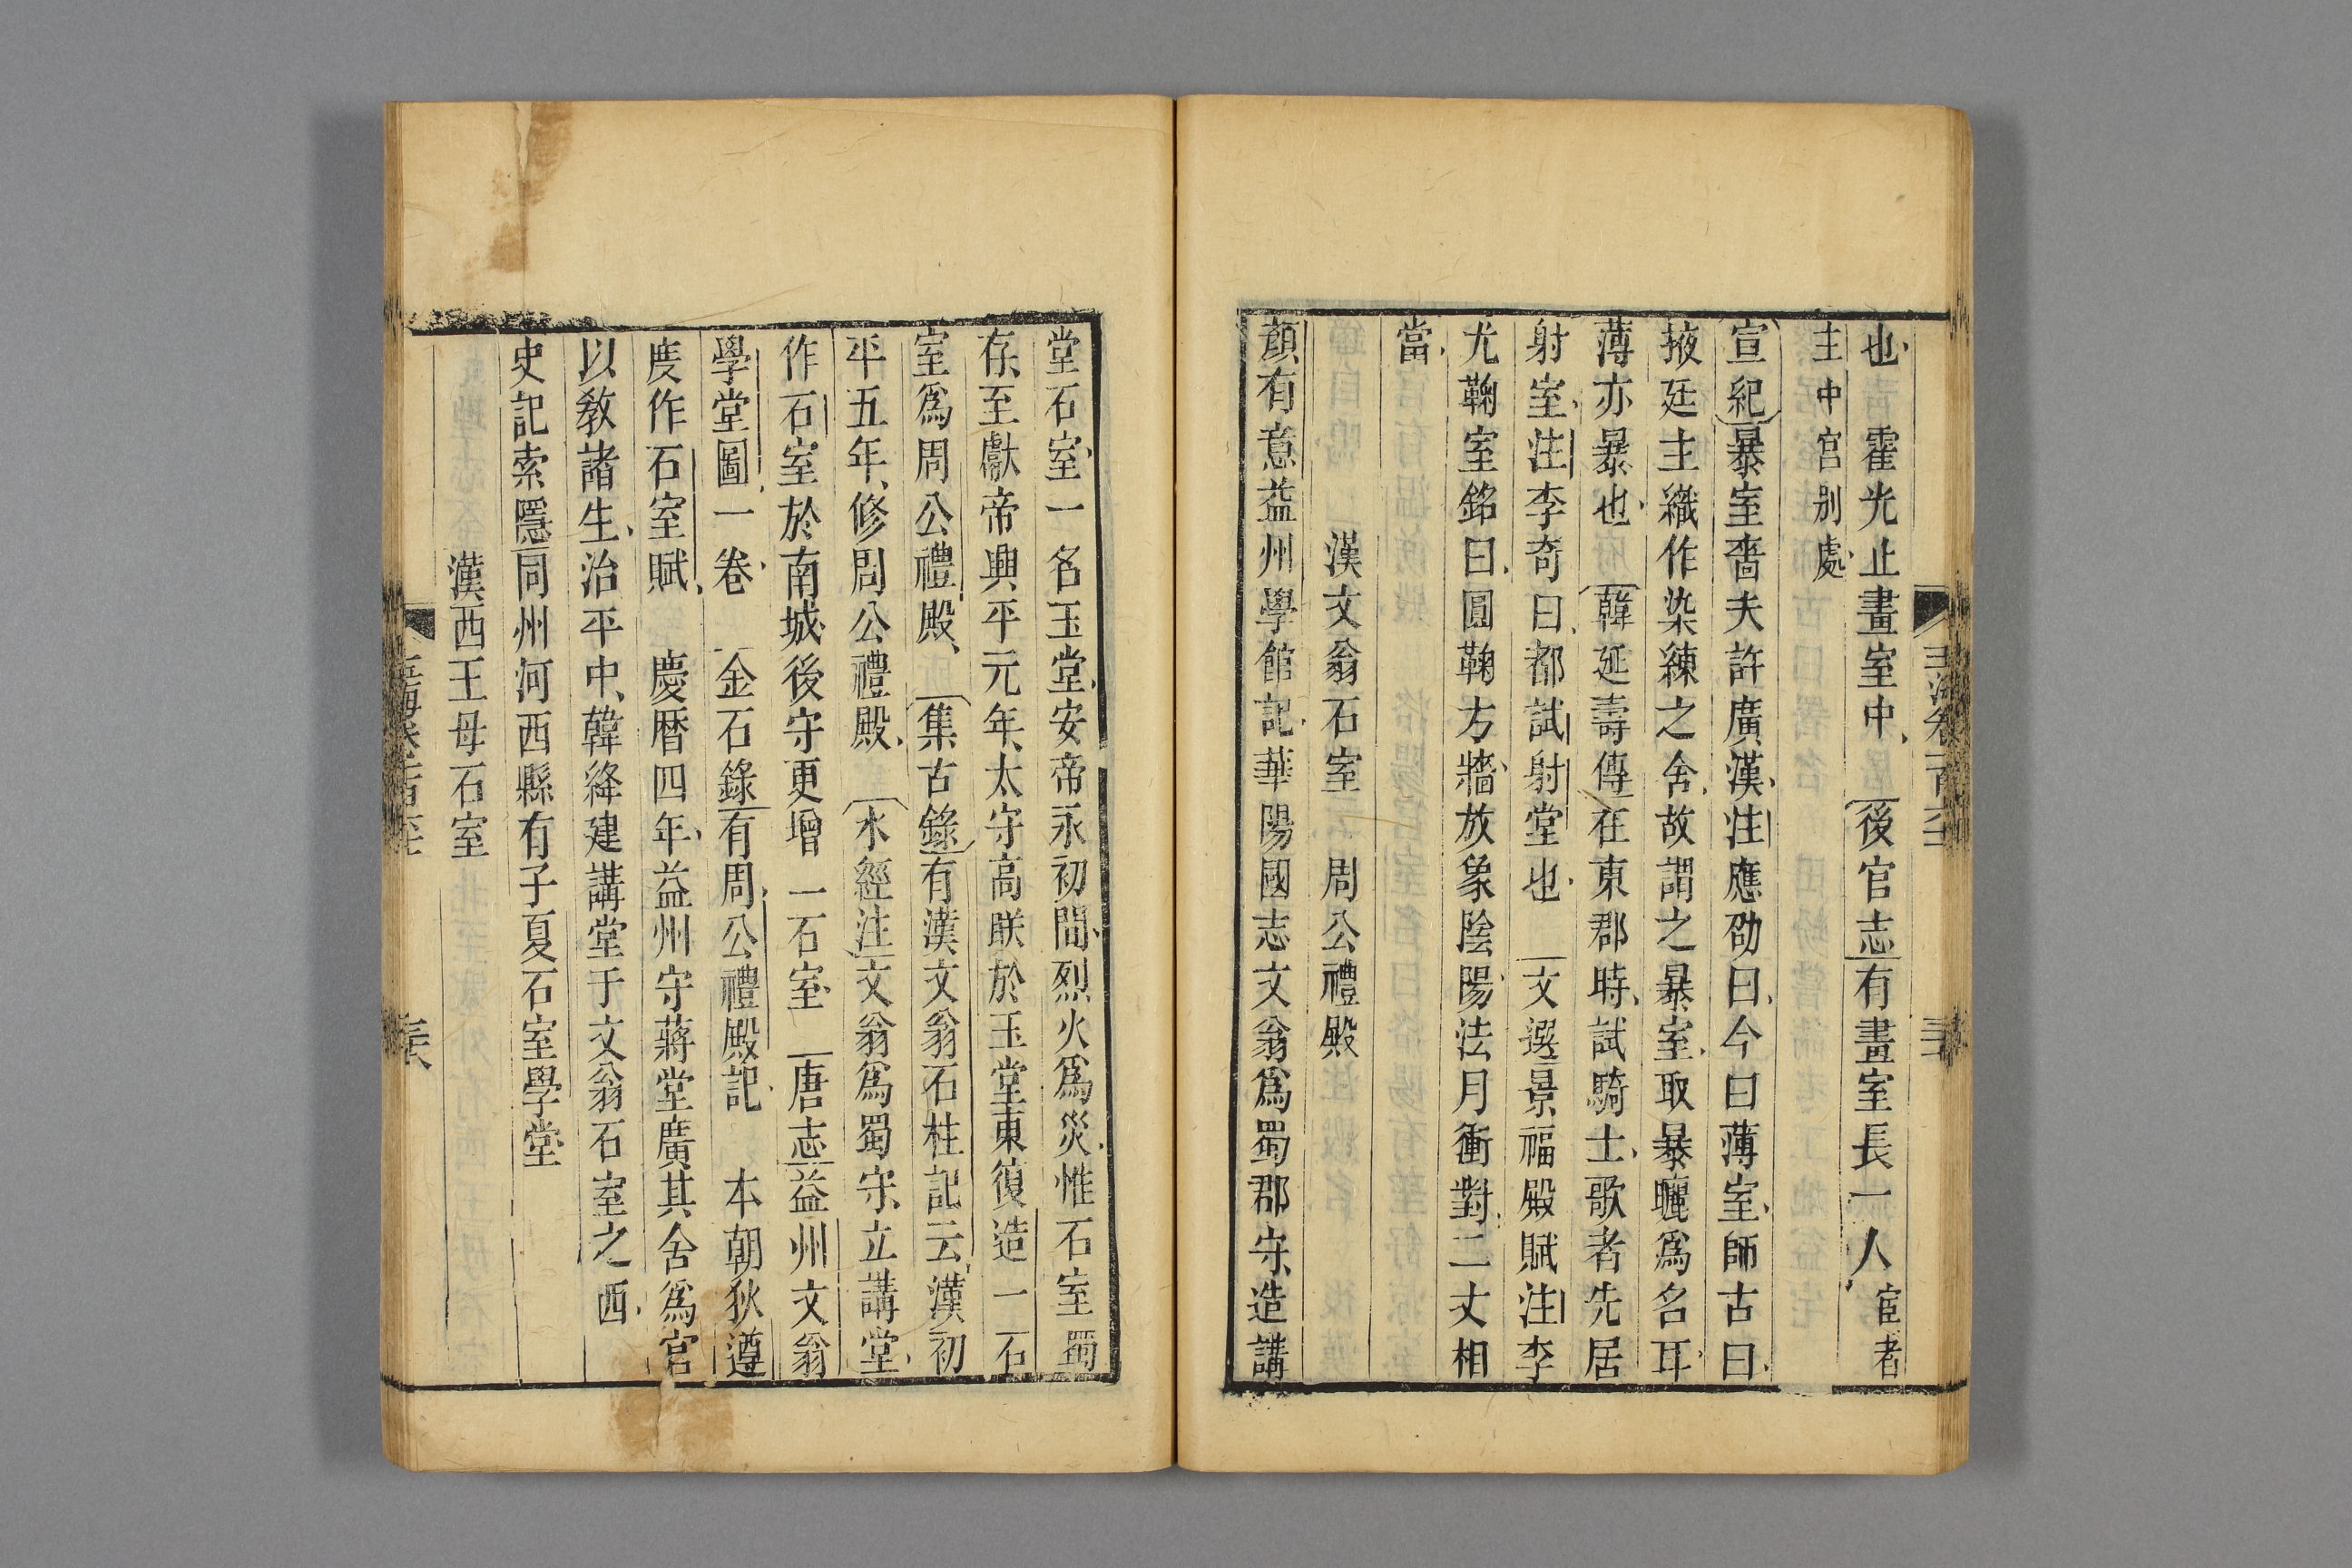 也　霍光止畫室中　後官志有畫室長一人宦者
主中宫别處
宣紀暴室嗇夫許廣漢注應劭曰今曰薄室師古曰
掖廷主織作染練之舍故謂之暴室取暴曬爲名耳
薄亦暴也　韓延壽傳在東郡時試騎士歌者先居
射室注李奇曰都試射堂也　文選景福殿賦注李
尤鞠室銘曰圓鞠方牆放象陰陽法月衝對二丈相
當
漢文翁石室　周公禮殿
顏有意益州學館記華陽國志文翁爲蜀郡守造講
堂石室一名玉堂安帝永初間烈火爲災惟石室蜀
存至獻帝興平元年太守高朕於玉堂東復造一石
室爲周公禮殿　集古錄有漢文翁石柱記云漢初
平五年修周公禮殿　水經注文翁爲蜀守立講堂
作石室於南城後守更增一石室　唐志益州文翁
學堂圖一卷　金石錄有周公禮殿記　本朝狄遵
度作石室賦　慶曆四年益州守蔣堂廣其舍爲宮
以教諸生治平中韓絳建講堂于文翁石室之西
史記索隱同州河西縣有子夏石室學堂
漢西王母石室